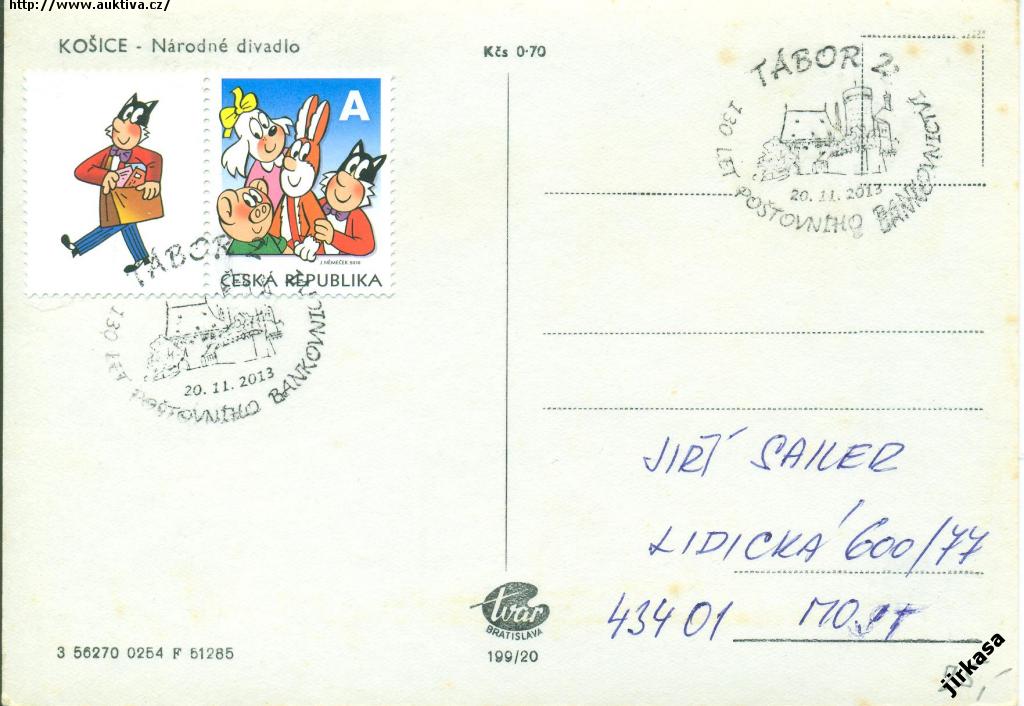 http://www.auktiva.cz/
KOŠICE - Národné divadlo
Kčs 0·70
TÁBOR 2
130 LET POŠTOVNÍHO BANKOVNICTVÍ
20. 11. 2013
A
J. NĚMEČEK 2010
ČESKÁ REPUBLIKA
TÁBOR 2
130 LET POŠTOVNÍHO BANKOVNICTVÍ
20. 11. 2013
JIŘÍ SAILER
LIDICKÁ 600/77
434 01 MOST
tvar
BRATISLAVA
199/20
3 56270 0254 F 51285
jirkasa